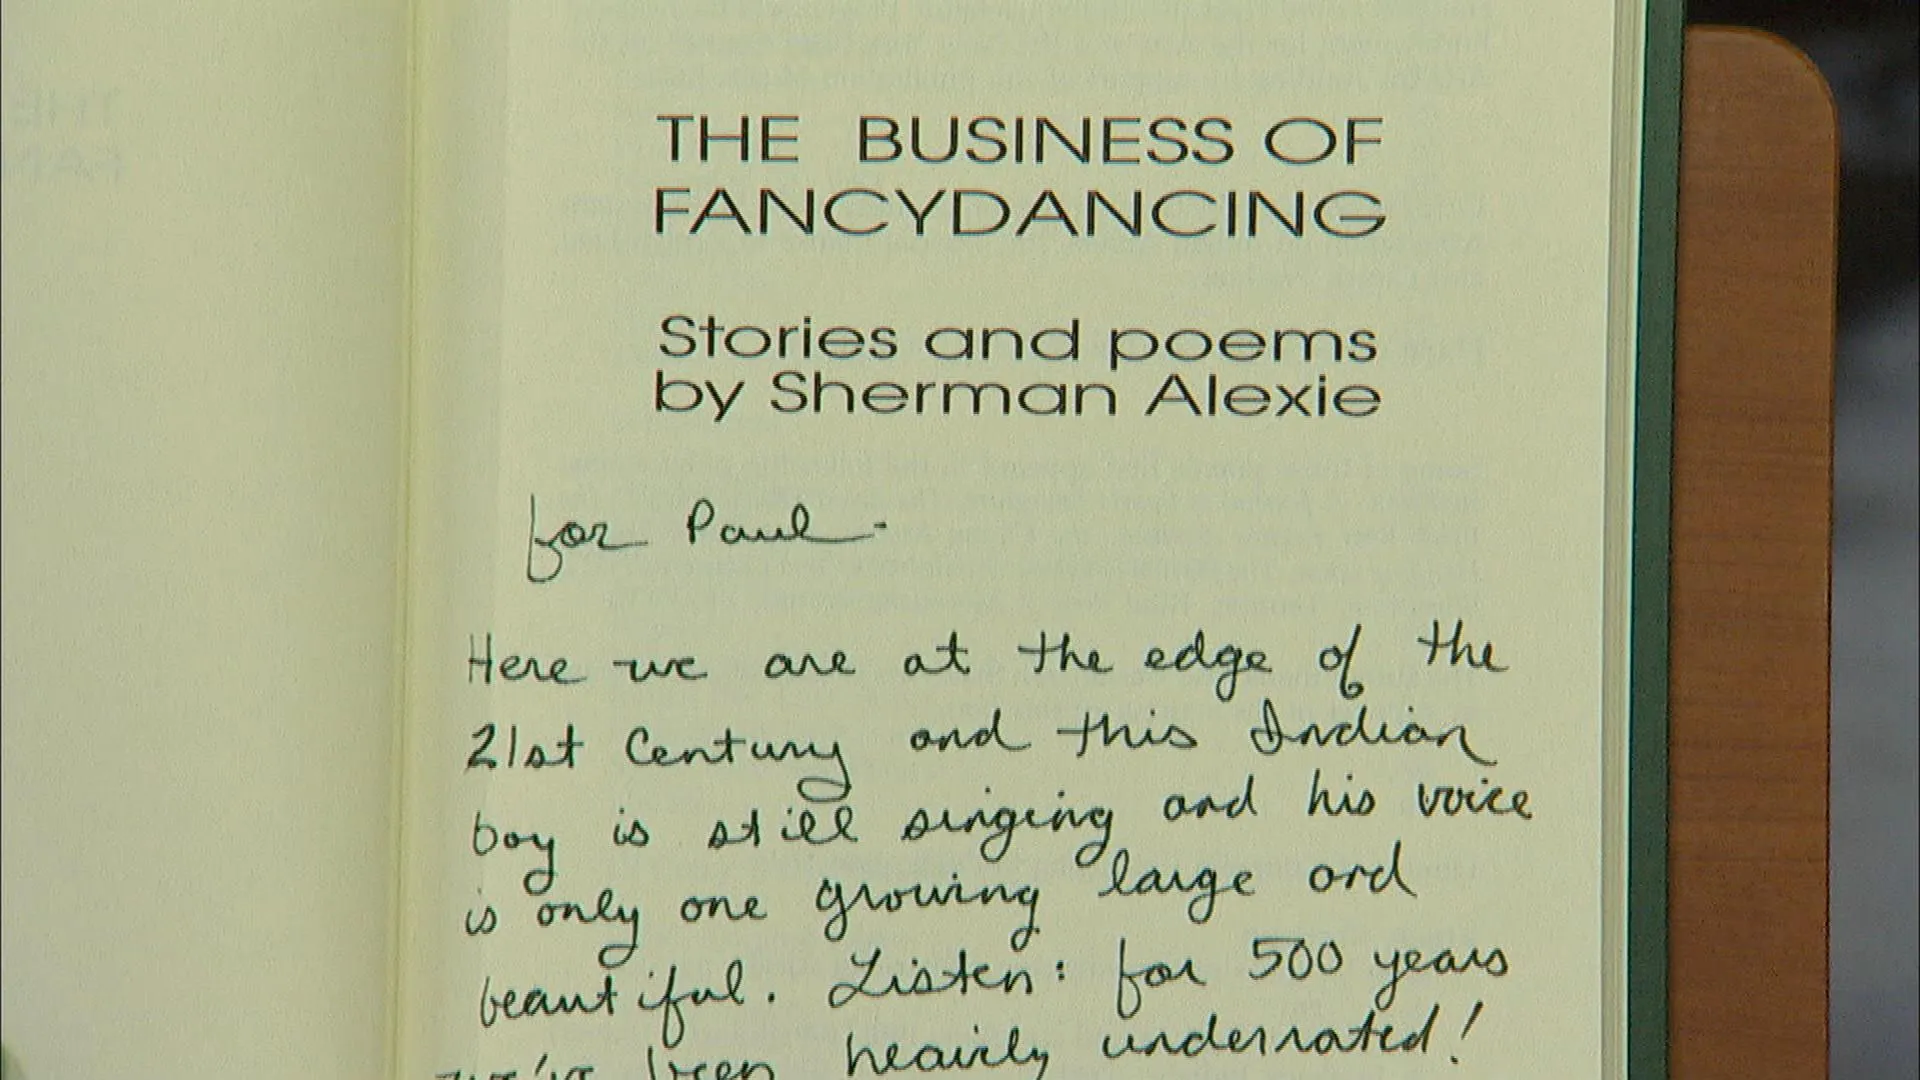 THE BUSINESS OF
FANCYDANCING
Stories and poems
by Sherman Alexie
for Paul-
Here we are at the edge of the
21st Century and this Indian
boy is still singing and his voice
is only one growing large and
beautiful. Listen: for 500 years
we've been heavily underrated!